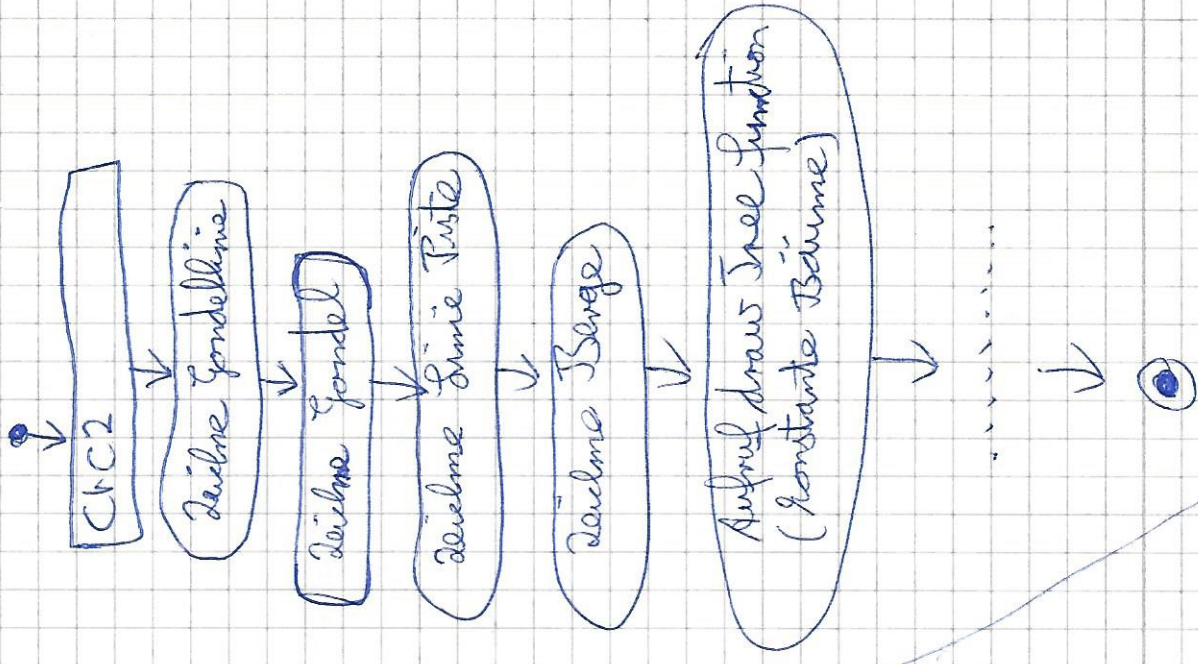 CRC2
Zeichne Gondellinie
Zeichne Gondel
Zeichne Linie Piste
Zeichne Berge
Aufruf draw Tree function
(konstante Bäume)